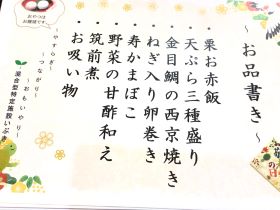 ～お品書き～
・栗お赤飯
・天ぷら三種盛り
・金目鯛の西京焼き
・ねぎ入り卵巻き
・寿かまぼこ
・野菜の甘酢和え
・筑前煮
・お吸い物
おやつは
お饅頭です
～やすらぎ～
～つながり～
～おもいやり～
混合型特定施設いぶき